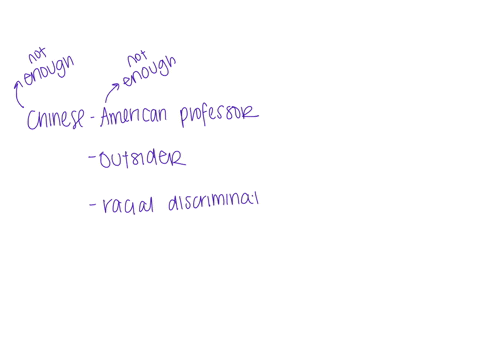 not
enough
not
enough
Chinese - American professor
- outsider
- racial discriminat